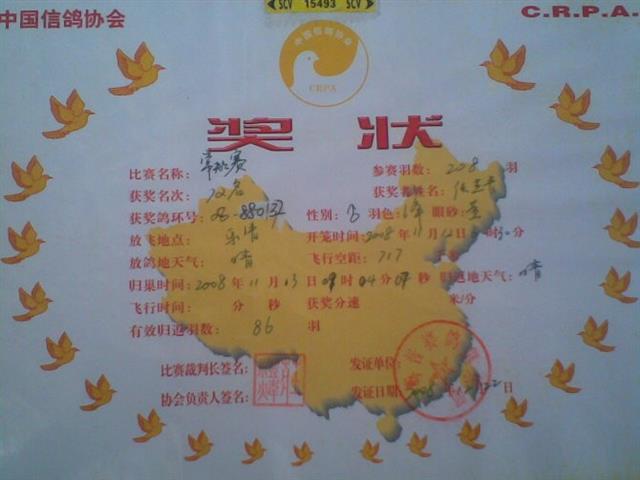 SCV 15493 SCV
中国信鸽协会 C.R.P.A.
中国信鸽协会
CRPA
奖 状
比赛名称： 赛 参赛羽数：208 羽
获奖名次：12名 获奖者姓名：
获奖鸽环号：08-880132 性别： 羽色： 眼砂：
放飞地点： 乐清 开笼时间：2008 年 11 月 12 日 时 分
放鸽地天气： 晴 飞行空距：717
归巢时间：2008 年 11 月 13 日 09 时 04 分 07 秒 归返地天气：晴
飞行时间： 分 秒 获奖分速 米/分
有效归返羽数： 86 羽
比赛裁判长签名： 发证单位：
协会负责人签名： 发证日期： 日